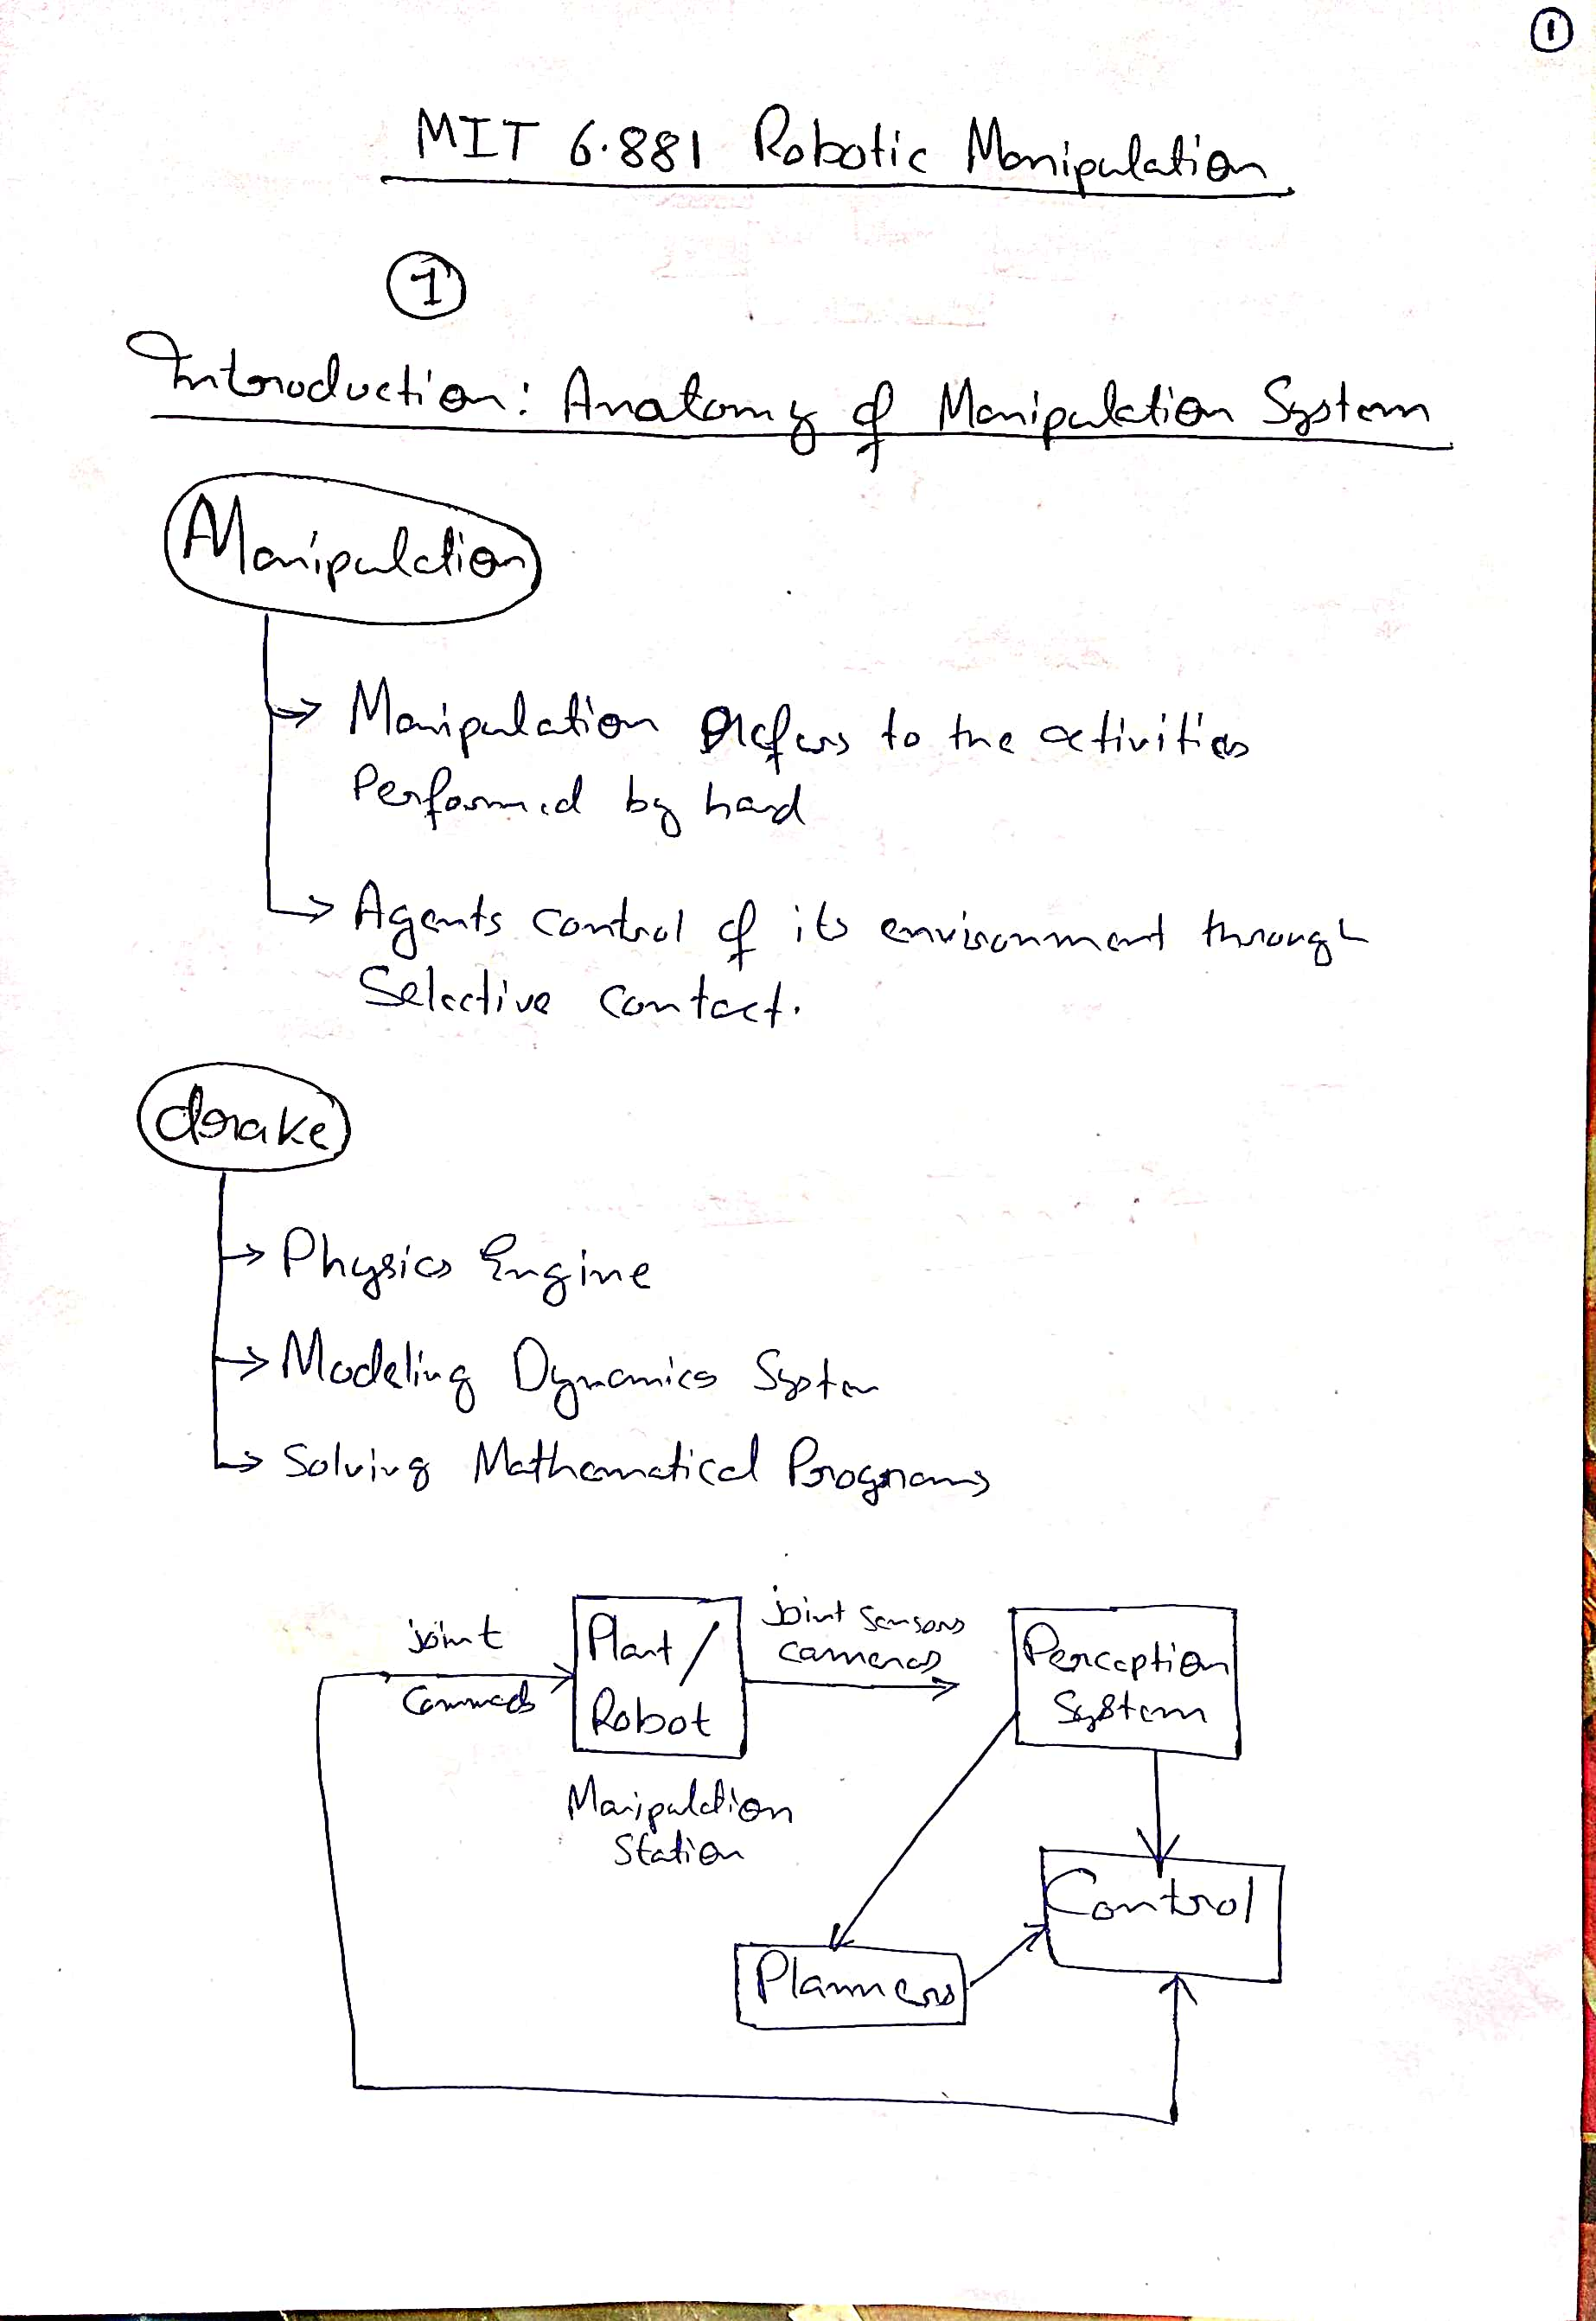 1
MIT 6.881 Robotic Manipulation
1
Introduction: Anatomy of Manipulation System
Manipulation
Manipulation refers to the activities
Performed by hand
Agents control of its environment through
Selective contact.
drake
Physics Engine
Modeling Dynamics System
Solving Mathematical Programs
joint
Commads
Plant /
Robot
joint sensors
cameras
Perception
System
Manipulation
Station
Control
Planners